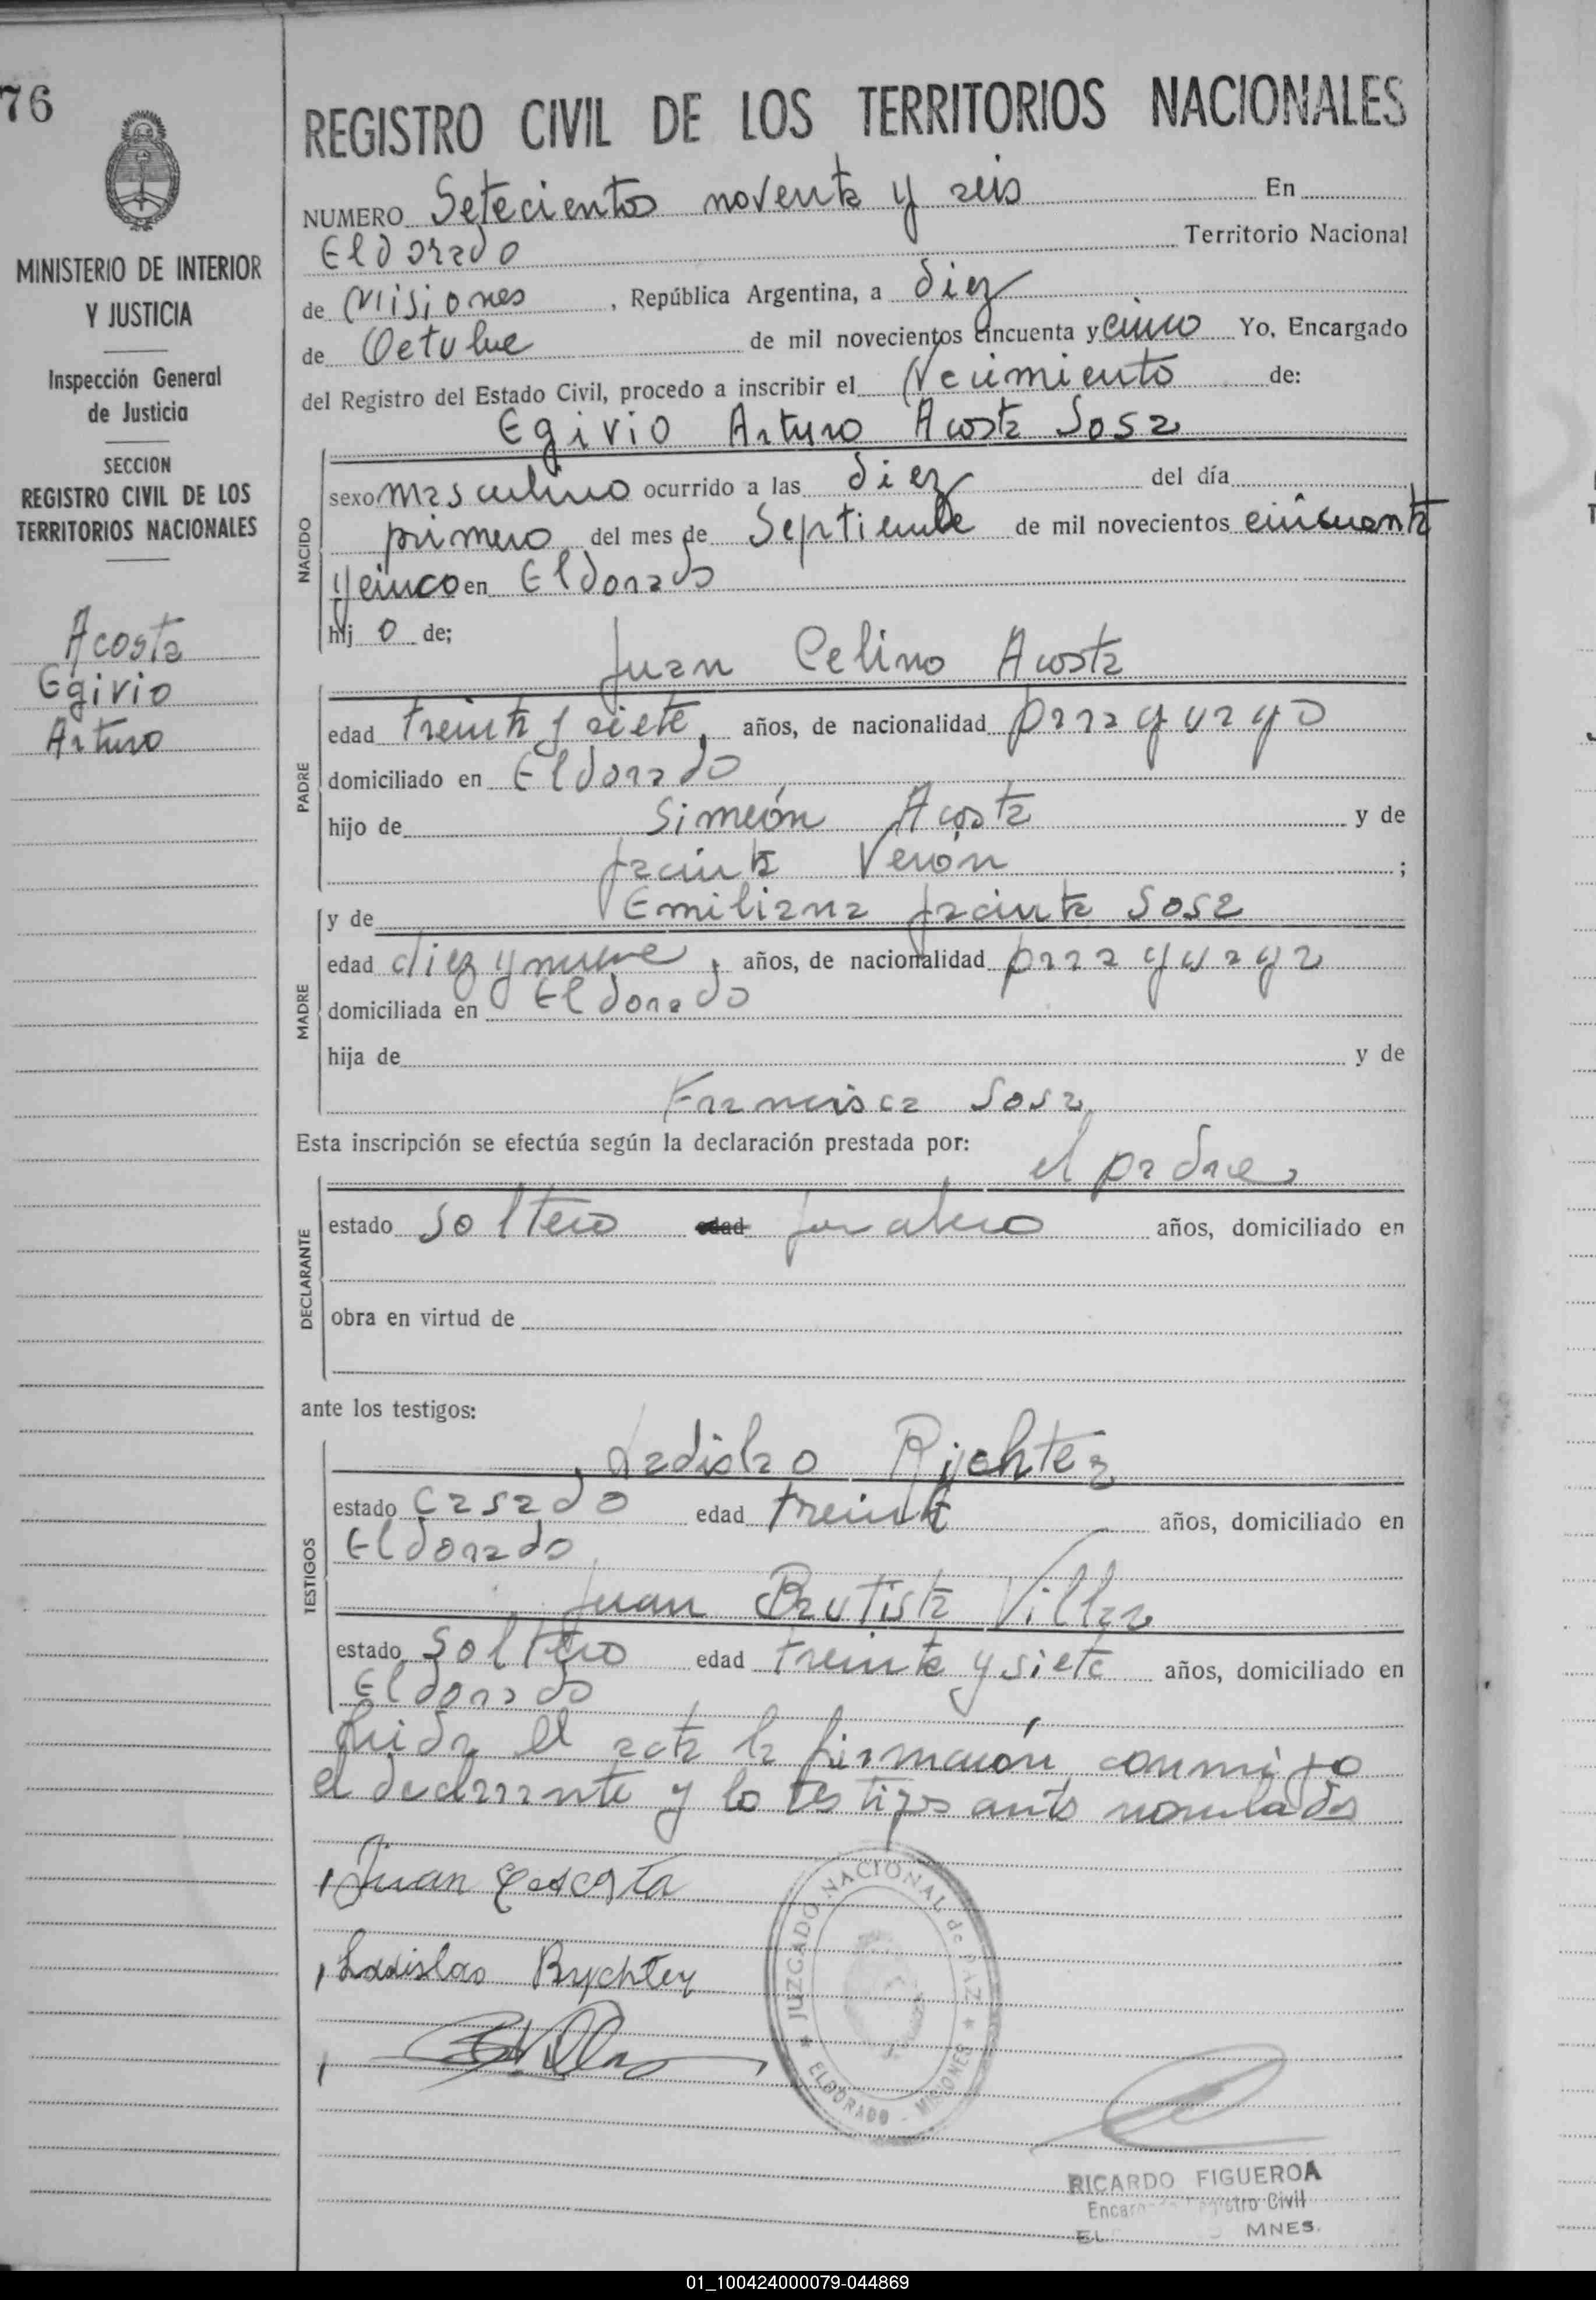 76
MINISTERIO DE INTERIOR
Y JUSTICIA
Inspección General
de Justicia
SECCION
REGISTRO CIVIL DE LOS
TERRITORIOS NACIONALES
Acosta
Egivio
Arturo
REGISTRO CIVIL DE LOS TERRITORIOS NACIONALES
NUMERO Setecientos noventa y seis En
Eldorado Territorio Nacional
de Misiones, República Argentina, a diez
de Octubre de mil novecientos cincuenta y cinco Yo, Encargado
del Registro del Estado Civil, procedo a inscribir el Nacimiento de:
Egivio Arturo Acosta Sosa
NACIDO
sexo masculino ocurrido a las diez del día
primero del mes de Septiembre de mil novecientos cincuenta
y cinco en Eldorado
hij o de;
Juan Celino Acosta
PADRE
edad treinta y siete, años, de nacionalidad paraguayo
domiciliado en Eldorado
hijo de Simeón Acosta y de
Jacinta Verón ;
y de Emiliana Jacinta Sosa
MADRE
edad diez y nueve, años, de nacionalidad paraguaya
domiciliada en Eldorado
hija de y de
Francisca Sosa
Esta inscripción se efectúa según la declaración prestada por:
el padre
DECLARANTE
estado Soltero edad jornalero años, domiciliado en
obra en virtud de
ante los testigos:
TESTIGOS
Ladislao Rychter
estado Casado edad treinta años, domiciliado en
Eldorado
Juan Bautista Villar
estado Soltero edad treinta y siete años, domiciliado en
Eldorado
el acta la firmación conmigo
el declarante y los testigos antes nombrados
Juan C Acosta
Ladislao Rychter
JUZGADO NACIONAL de PAZ
ELDORADO - MISIONES
RICARDO FIGUEROA
Registro Civil
MNES.
01_100424000079-044869